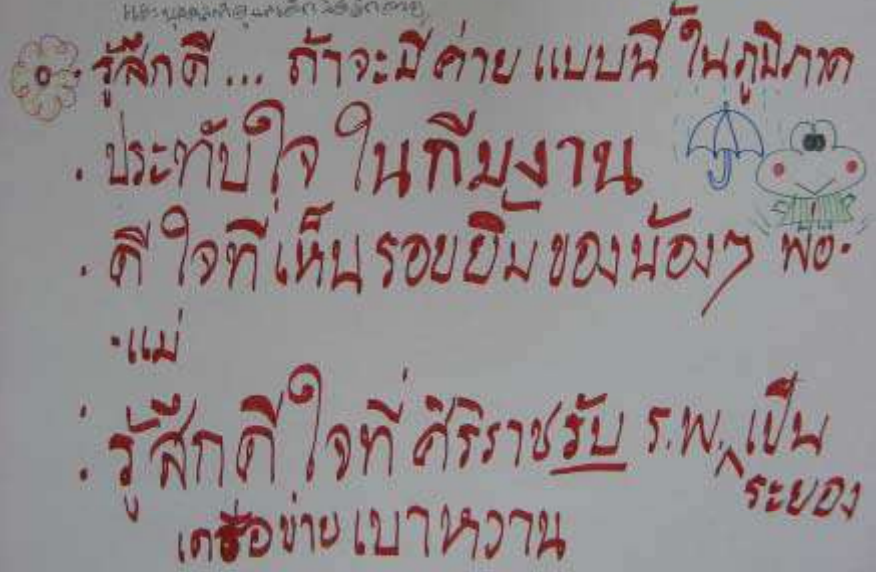 รู้สึกดี... ถ้าจะมีค่ายแบบนี้ ในภูมิภาค
· ประทับใจ ในทีมงาน
· ดีใจที่เห็นรอยยิ้มของน้องๆ พ่อ·
·แม่
: รู้สึกดีใจที่ ศิริราชรับ ร.พ. ^ เป็น
ระยอง
เครือข่ายเบาหวาน